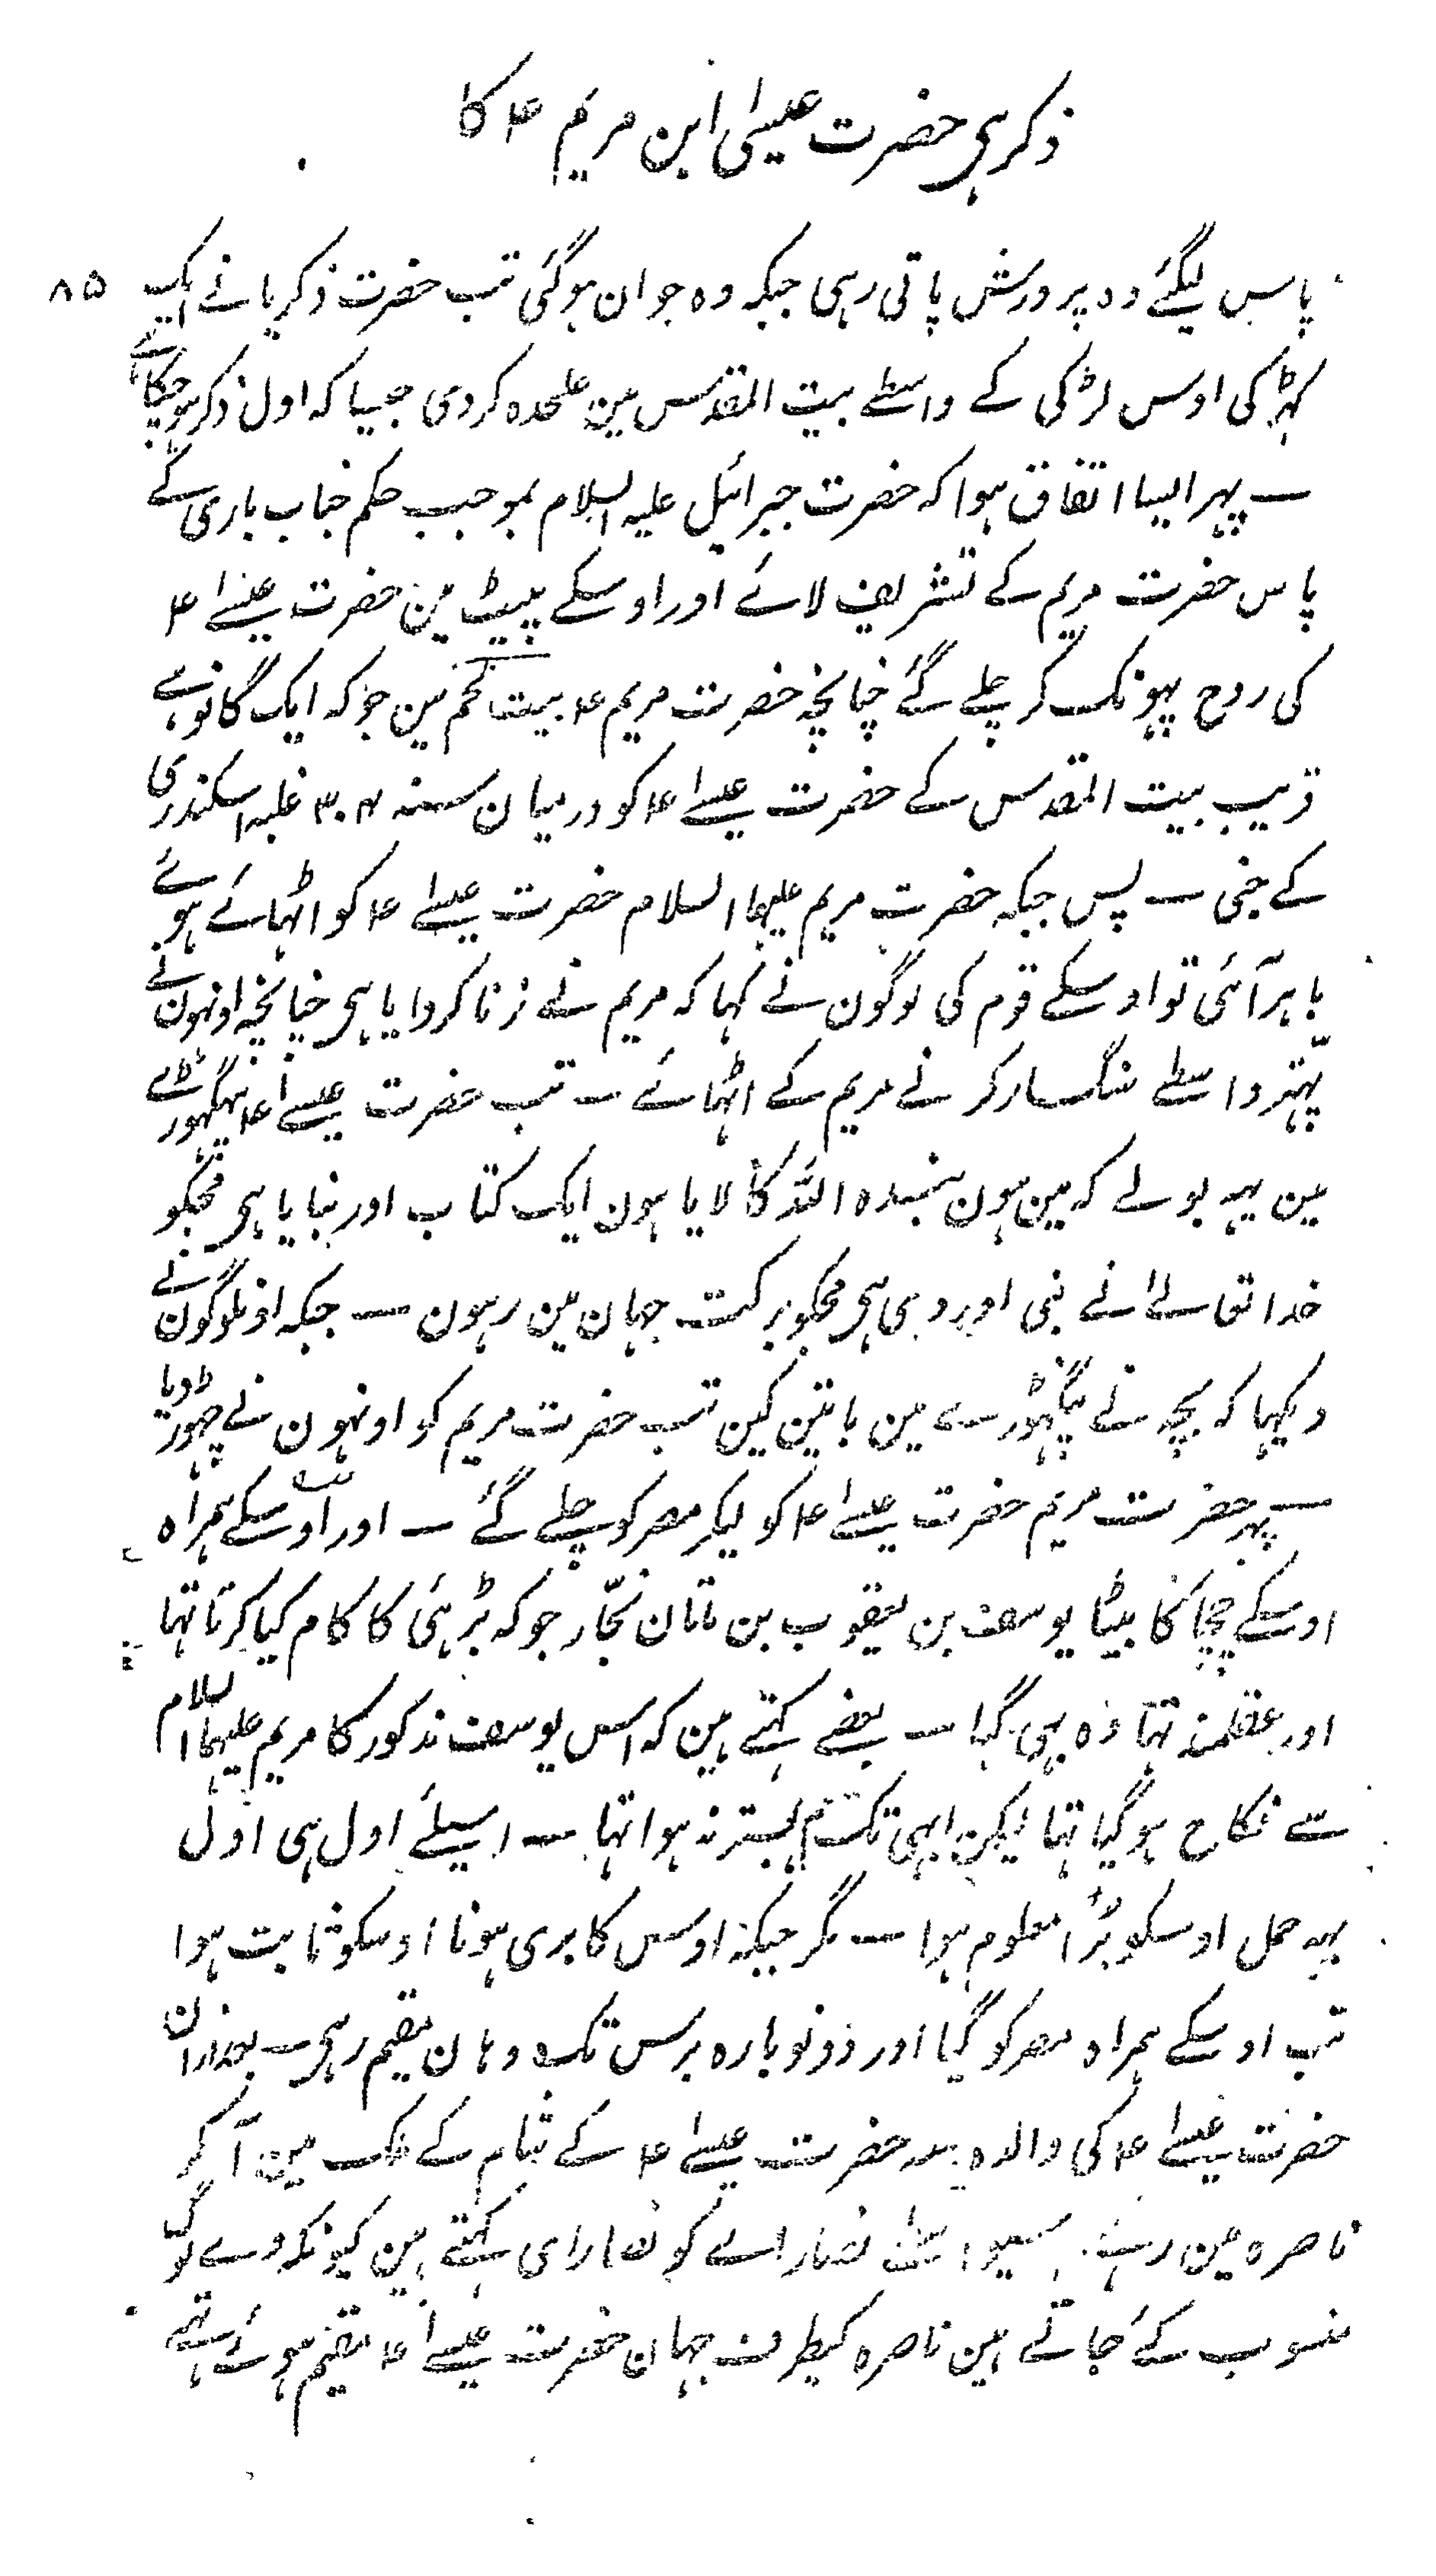 ذکر ہی حضرت عیسیٰ ابن مریم ۴ کا
۸۵
پاس لیگئے وہ پرورش پاتی رہی جبکہ وہ جوان ہوگئی تب حضرت ذکریا نے ایک
کہڑکی اوس لڑکی کے واسطے بیت المقدس مین علحدہ کردی جیسا کہ اول ذکر ہوچکا ہے
ـ پہر ایسا اتفاق ہوا کہ حضرت جبرائیل علیہ السلام بموجب حکم جناب باری کے
پاس حضرت مریم کے تشریف لائے اور اوسکے پیٹ مین حضرت عیسے ۴
کی روح پہونک کر چلے گئے چنانچہ حضرت مریم ۴ بیت لحم مین جو کہ ایک گانو ہے
قریب بیت المقدس کے حضرت عیسے ۴ کو درمیان سنہ ۳۰۴ غلبہ اسکندری
کے جنی ـ پس جبکہ حضرت مریم علیہا السلام حضرت عیسے ۴ کو اٹہائے ہوئے
باہر آئی تو اوسکے قوم کی لوگون نے کہا کہ مریم نے زنا کروایا ہی چنانچہ اونہون نے
پتہر واسطے سنگسار کرنے مریم کے اٹہائے ـ تب حضرت عیسے ۴ پنگہوڑے
مین یہہ بولے کہ مین ہون بندہ اللہ کا لایا ہون ایک کتاب اور بنایا ہی مجکو
خدا تعالےٰ نے نبی اور دی ہی مجکو برکت جہان مین رہون ـ جبکہ اونلوگون نے
دیکہا کہ بچہ نے پنگہوڑے مین باتین کین تب حضرت مریم کو اونہون نے چہوڑ دیا
ـ پہر حضرت مریم حضرت عیسے ۴ کو لیکر مصر کو چلے گئے ـ اور اوسکے ہمراہ
اوسکے چچا کا بیٹا یوسف بن یعقوب بن ماتان نجّار جو کہ بڑہئی کا کام کیا کرتا تہا
اور عقلمند تہا وہ بہی گیا ـ بعضے کہتے ہین کہ اس یوسف مذکور کا مریم علیہا السلام
سے نکاح ہوگیا تہا لیکن ابہی تک ہم بستر نہ ہوا تہا ـ اسیلئے اول ہی اول
یہہ حمل اوسکو بڑا معلوم ہوا ـ مگر جبکہ اوس کا بری ہونا اوسکو ثابت ہوا
تب اوسکے ہمراہ مصر کو گیا اور دونو بارہ برس تک وہان مقیم رہی ـ بعد ازان
حضرت عیسے ۴ کی والدہ حضرت عیسے ۴ کے شام کے ملک مین آ کر
ناصرہ مین رہے نصارےٰ کو نصارای کہتے ہین کیونکہ وے لوگ
منسوب کئے جاتے ہین ناصرہ کیطرف جہان حضرت عیسے ۴ مقیم ہوئے تہے